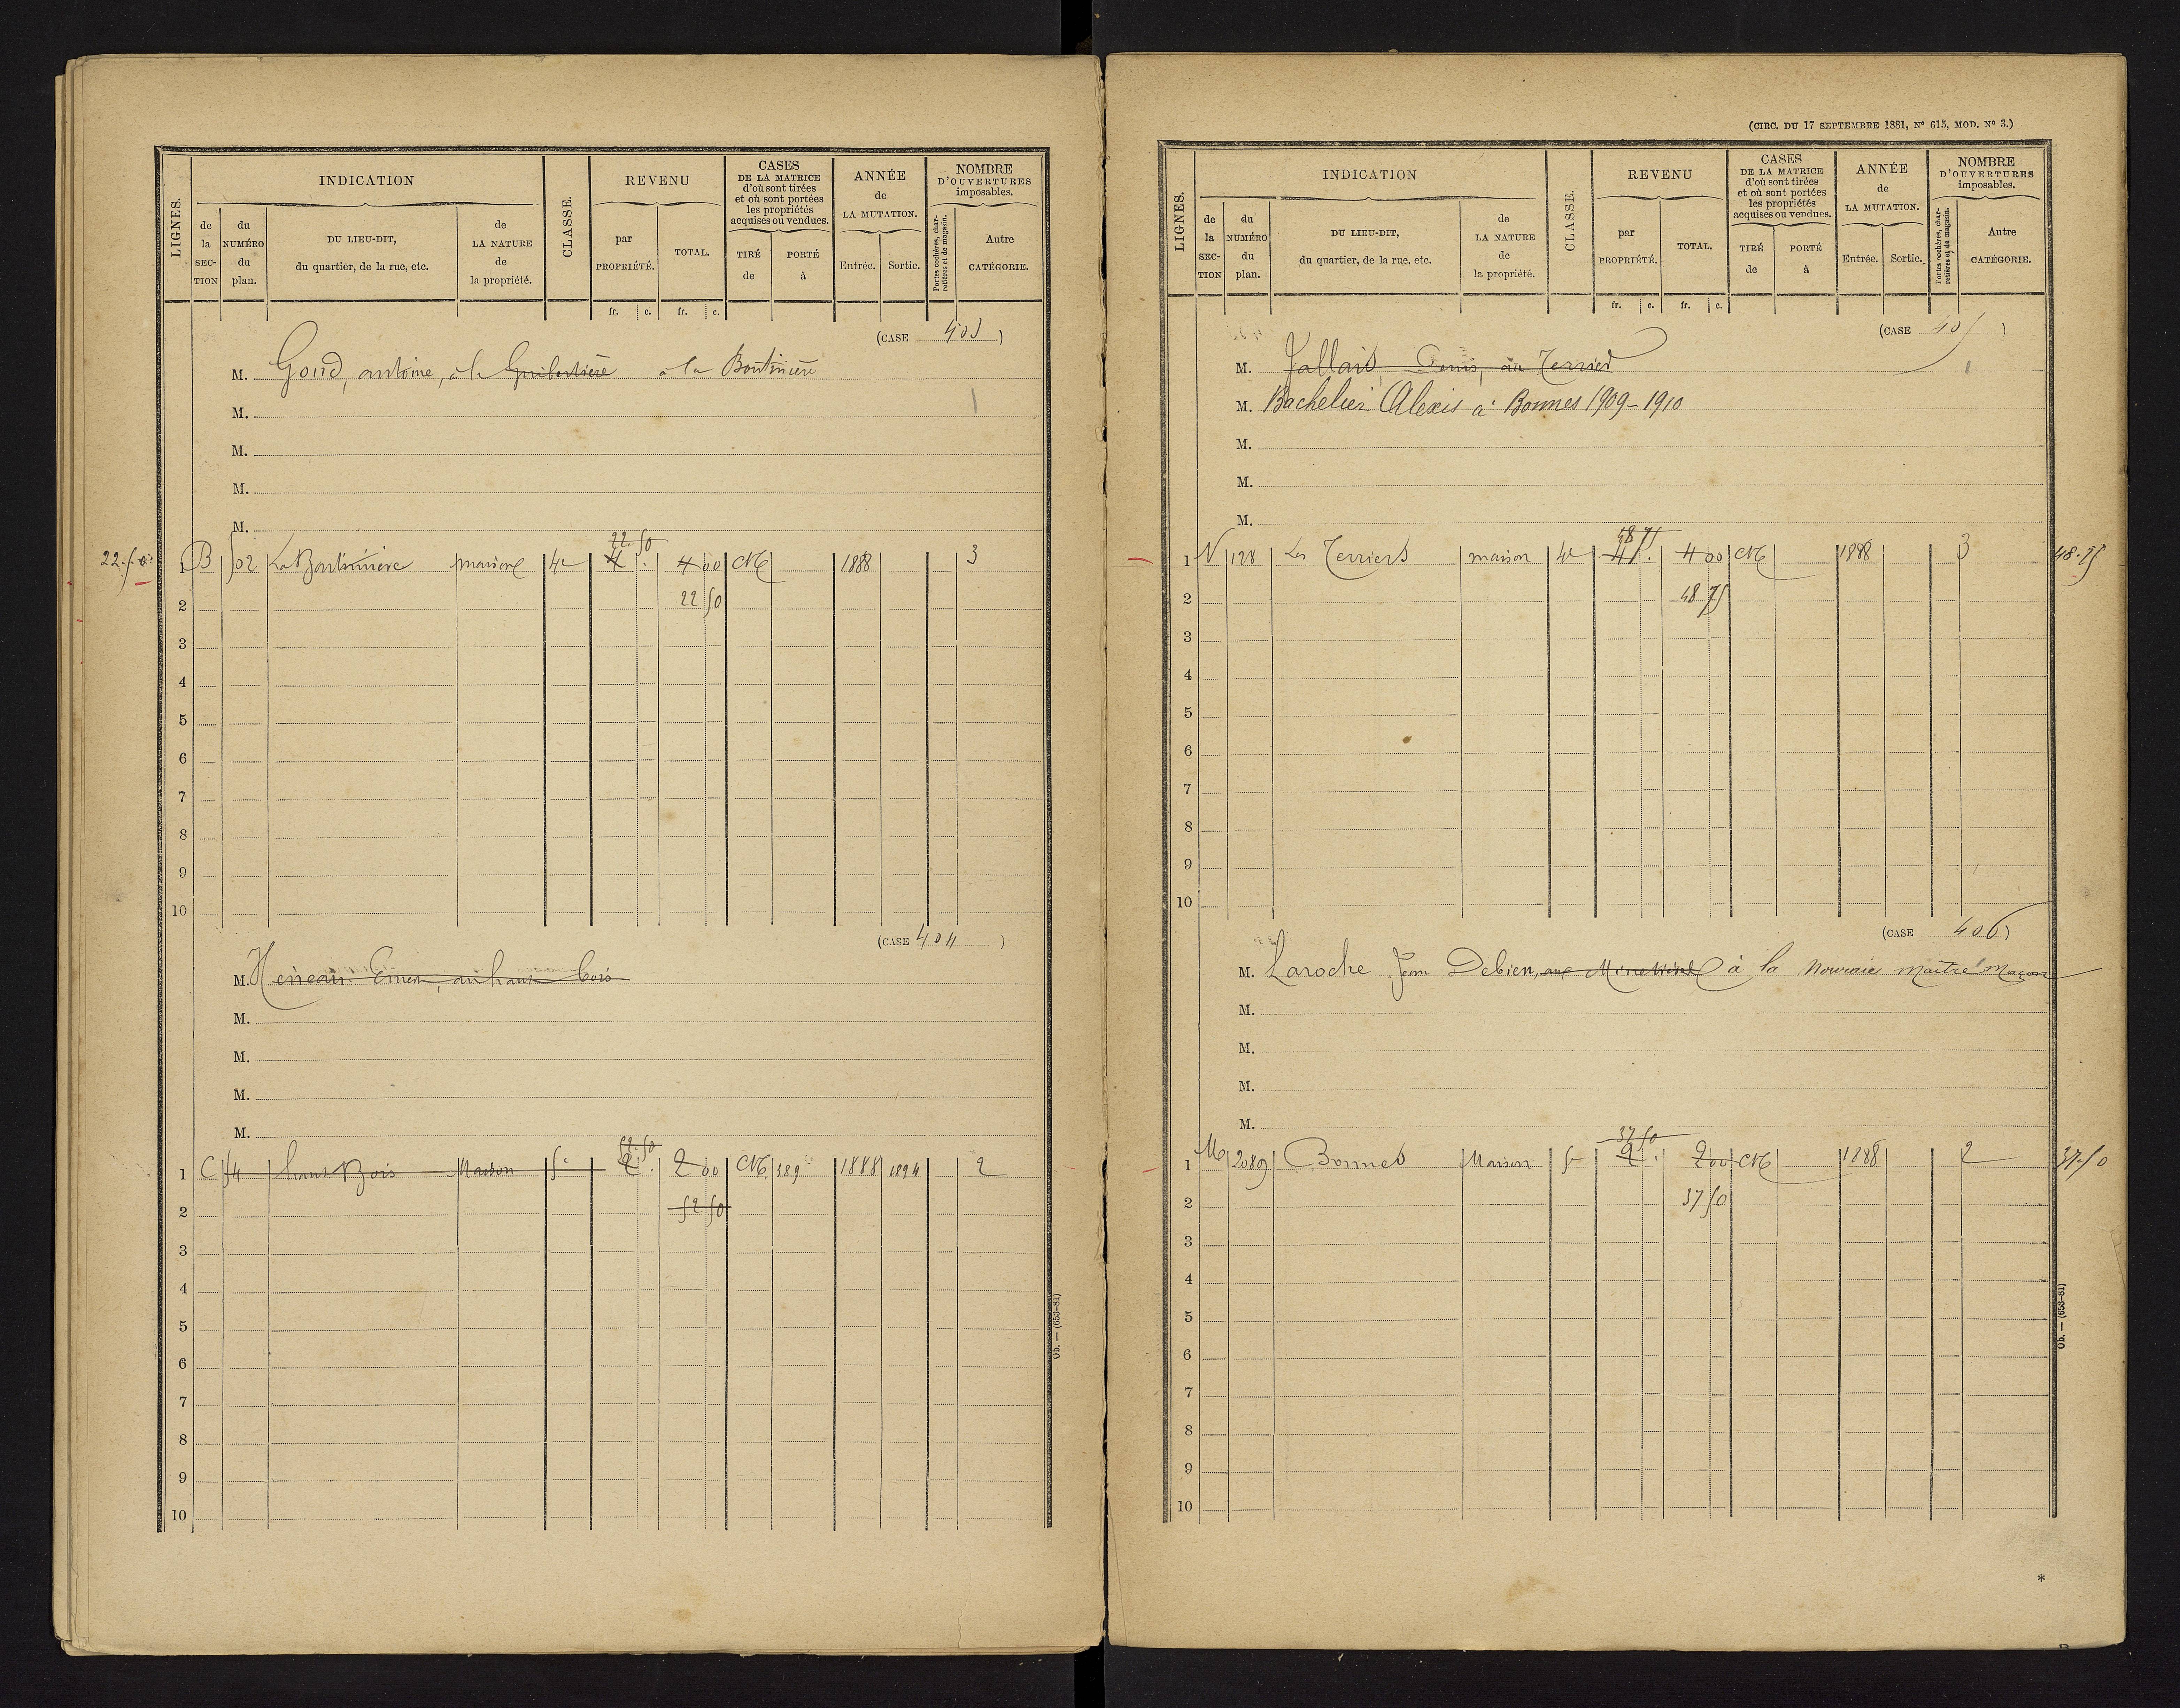 LIGNES.
INDICATION
de la SECTION
du NUMÉRO du plan.
DU LIEU-DIT, du quartier, de la rue, etc.
de LA NATURE de la propriété.
CLASSE.
REVENU
par PROPRIÉTÉ.
TOTAL.
CASES DE LA MATRICE d'où sont tirées et où sont portées les propriétés acquises ou vendues.
TIRÉ de
PORTÉ à
ANNÉE de LA MUTATION.
Entrée.
Sortie.
NOMBRE D'OUVERTURES imposables.
Portes cochères, charretières et de magasin.
Autre CATÉGORIE.
fr. c. fr. c.
(CASE 403)
M. Goud, antoine, à la Guibertière à la Boutinière
M.
M.
M.
M.
22.50
22.50 1 B 502 La Boutinière maison 4e 4 . 4 00 CN 1888 3
2 22 50
3
4
5
6
7
8
9
10
(CASE 404)
M. haut bois
M.
M.
M.
M.
52.50
1 C 54 haut Bois Maison 5e 2 . 2 00 CN 389 1888 1894 2
2 52 50
3
4
5
6
7
8
9
10
Ob. — (653-81)
(CIRC. DU 17 SEPTEMBRE 1881, N° 615, MOD. N° 3.)
LIGNES.
INDICATION
de la SECTION
du NUMÉRO du plan.
DU LIEU-DIT, du quartier, de la rue, etc.
de LA NATURE de la propriété.
CLASSE.
REVENU
par PROPRIÉTÉ.
TOTAL.
CASES DE LA MATRICE d'où sont tirées et où sont portées les propriétés acquises ou vendues.
TIRÉ de
PORTÉ à
ANNÉE de LA MUTATION.
Entrée.
Sortie.
NOMBRE D'OUVERTURES imposables.
Portes cochères, charretières et de magasin.
Autre CATÉGORIE.
fr. c. fr. c.
(CASE 405)
M. Jallais, Denis, au Terrier
M. Bachelier Alexis à Bonnes 1909-1910
M.
M.
M.
48 75
1 N 128 Les Terriers maison 4e 4 . 4 00 CN 1888 3 48.75
2 48 75
3
4
5
6
7
8
9
10
(CASE 406)
M. Laroche Jean Debien, à la maître maçon
M.
M.
M.
M.
37 50
1 M 2089 Bonnes Maison 5e 2 . 2 00 CN 1888 2 37.50
2 37 50
3
4
5
6
7
8
9
10
Ob. — (653-81)
*